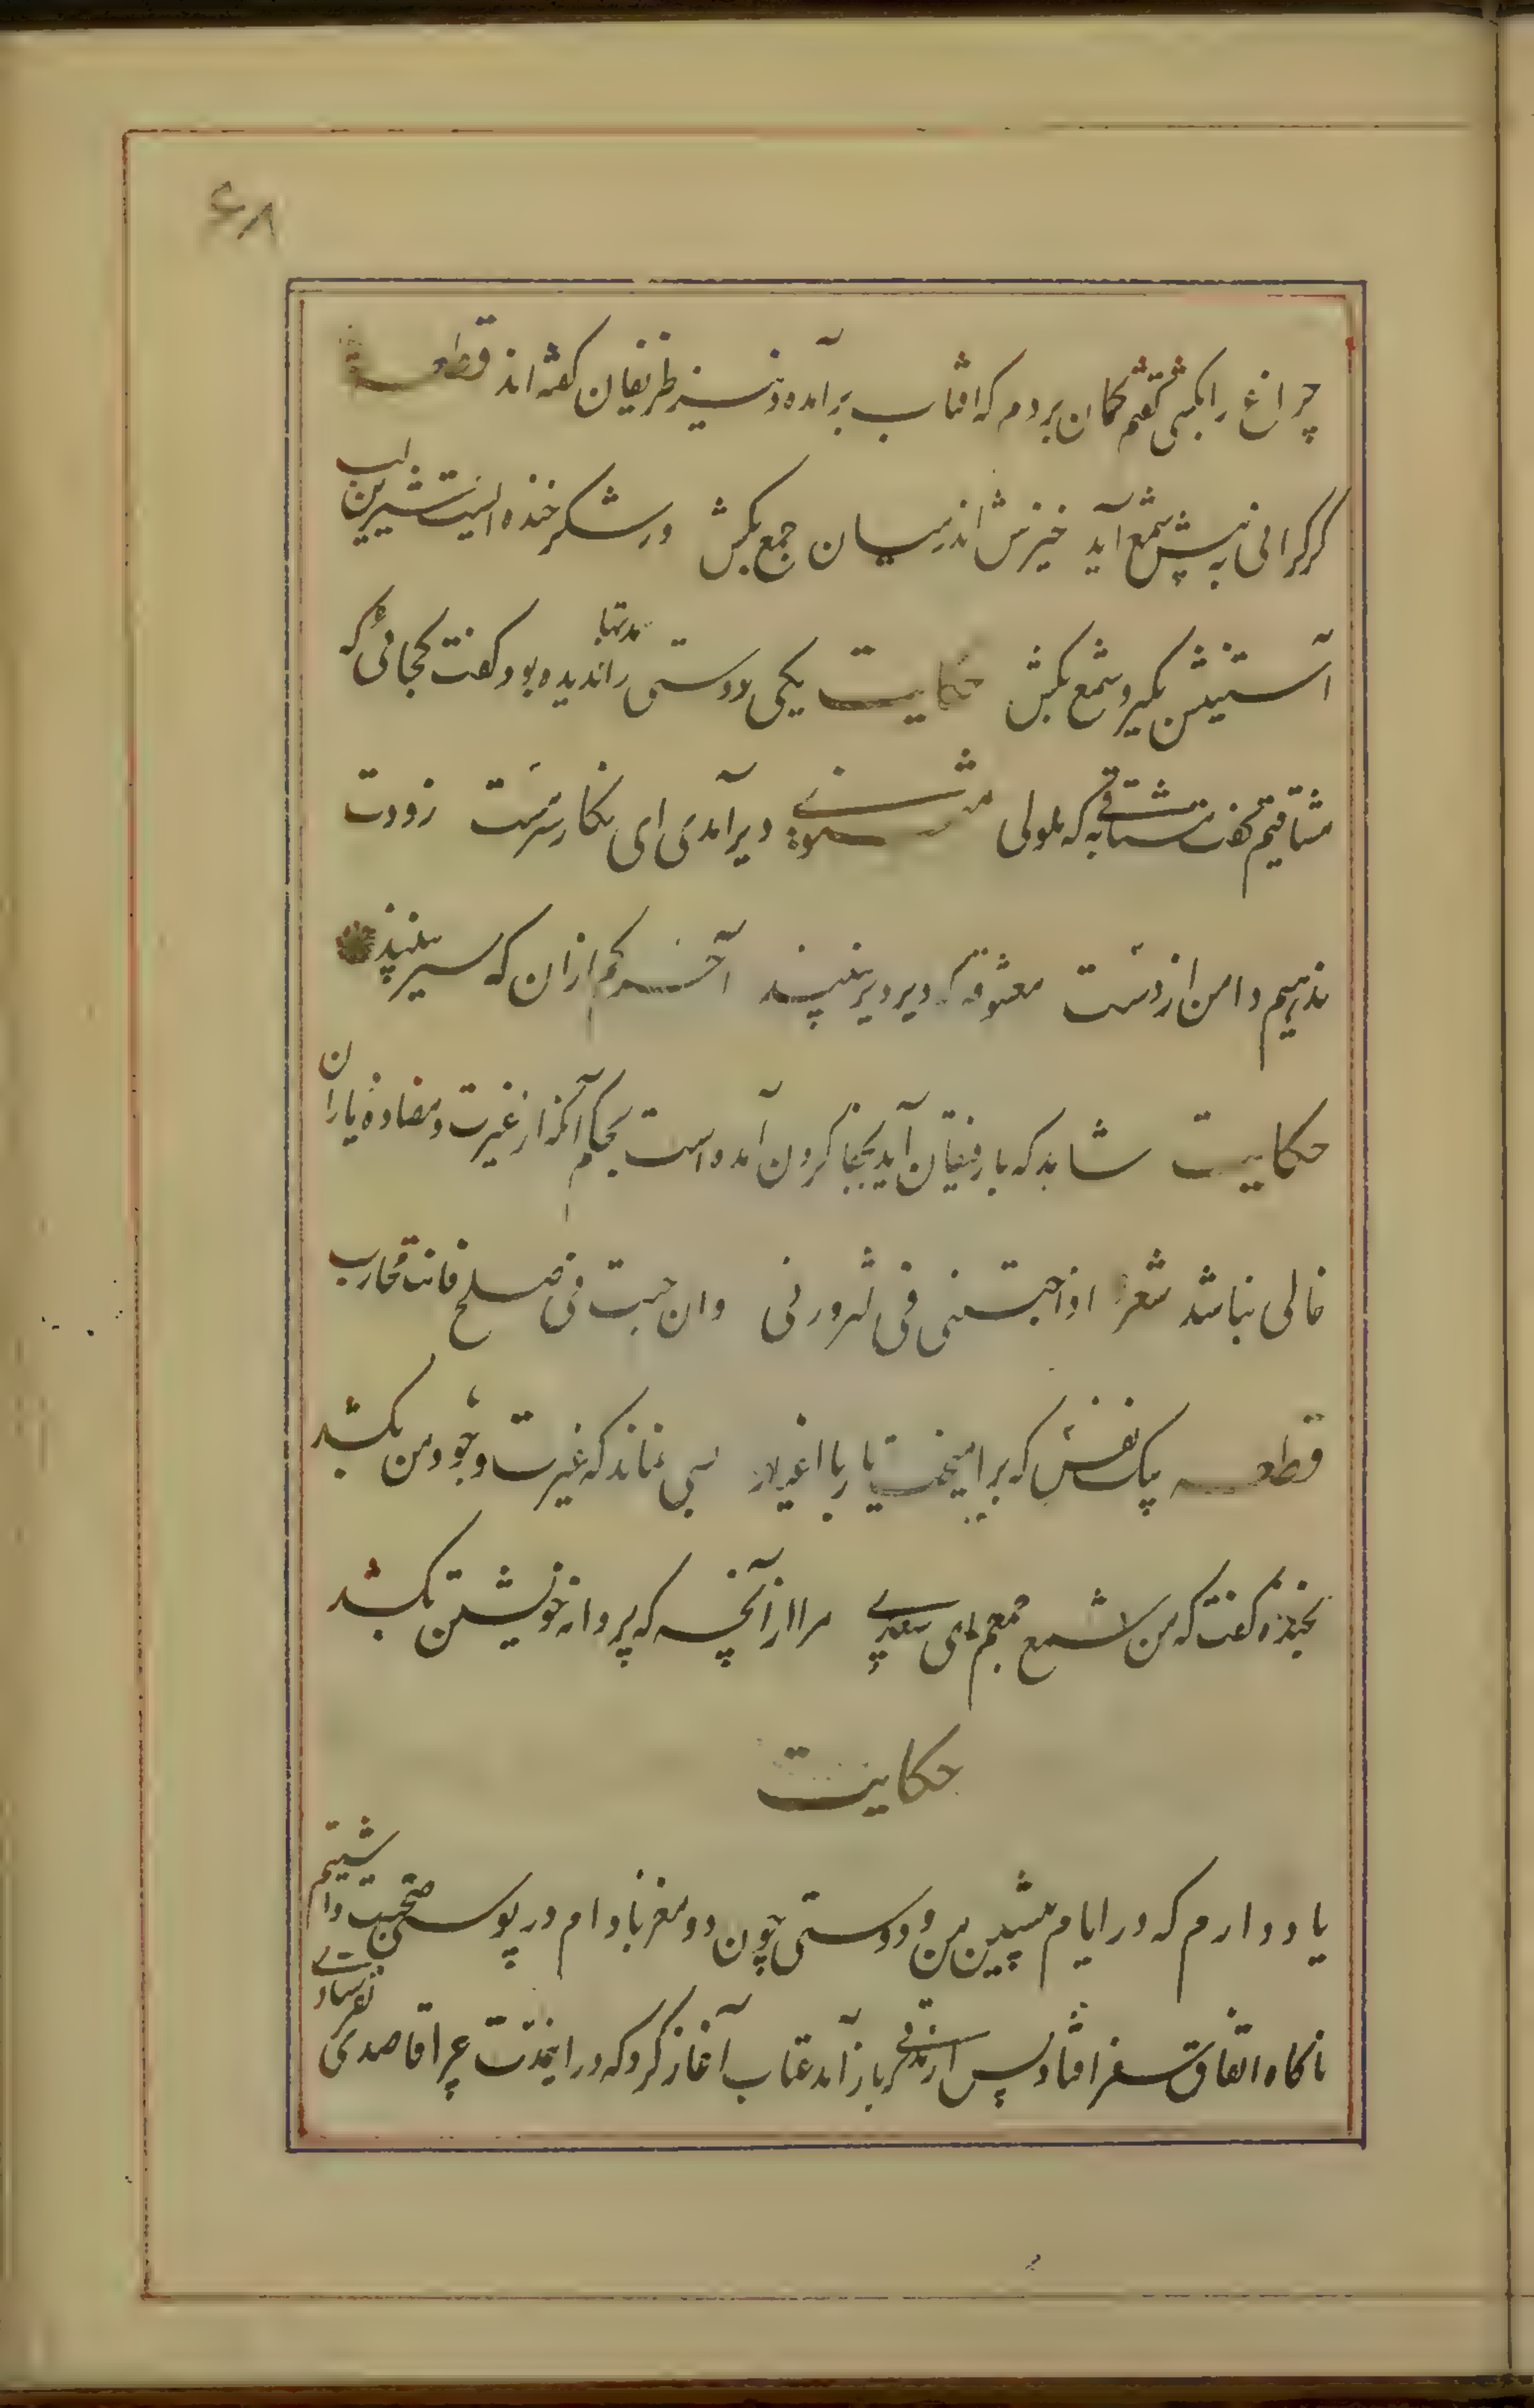 ۶۸
چراغ را بکشی گفتم گمان بردم که افتاب برآمد و نیز ظریفان گفته اند قطعه
گر گرانی به پیش شمع آید خیزش اندر میان جمع بکش ور شکر خنده ایست شیرین لب
آستینش بگیر و شمع بکش حکایت یکی دوستی را مدتها ندیده بود گفت کجائی که
مشتاقیم گفت مشتاقی به که ملولی مثنوی دیر آمدی ای نگار سرمست زودت
ندهیم دامن از دست معشوقه که دیر دیر بینند آخر کم ازان که سیر بینند
حکایت شاهد که با رفیقان آید بجفا کردن آمده است بحکم آنکه از غیرت و مضادهٔ یاران
خالی نباشد شعر اذا جئتنی فی لتزورنی وان جئت فی صلح فانت محارب
قطعه یک نفس که برامیخت یار با اغیار بسی نماند که غیرت وجود من بکشد
بخنده گفت که من شمع جمعم ای سعدی مرا ازآنچه که پروانه خویشتن بکشد
حکایت
یاد دارم که در ایام پیشین من و دوستی چون دو مغز بادام در پوستی صحبت داشتیم
ناگاه اتفاق سفر افتاد پس از مدتی باز آمد عتاب آغاز کرد که در اینمدت چرا قاصدی نفرستادی